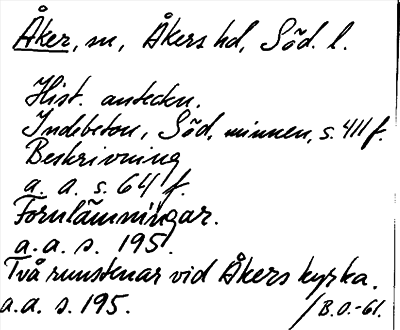 Åker, sn, Åkers hd, Söd. l.
Hist. anteckn.
Indebetou, Söd. minnen, s. 411 f.
Beskrivning
a. a. s. 64 f.
Fornlämningar.
a. a. s. 195.
Två runstenar vid Åkers kyrka.
a.a. s. 195.
/B.O.-61.